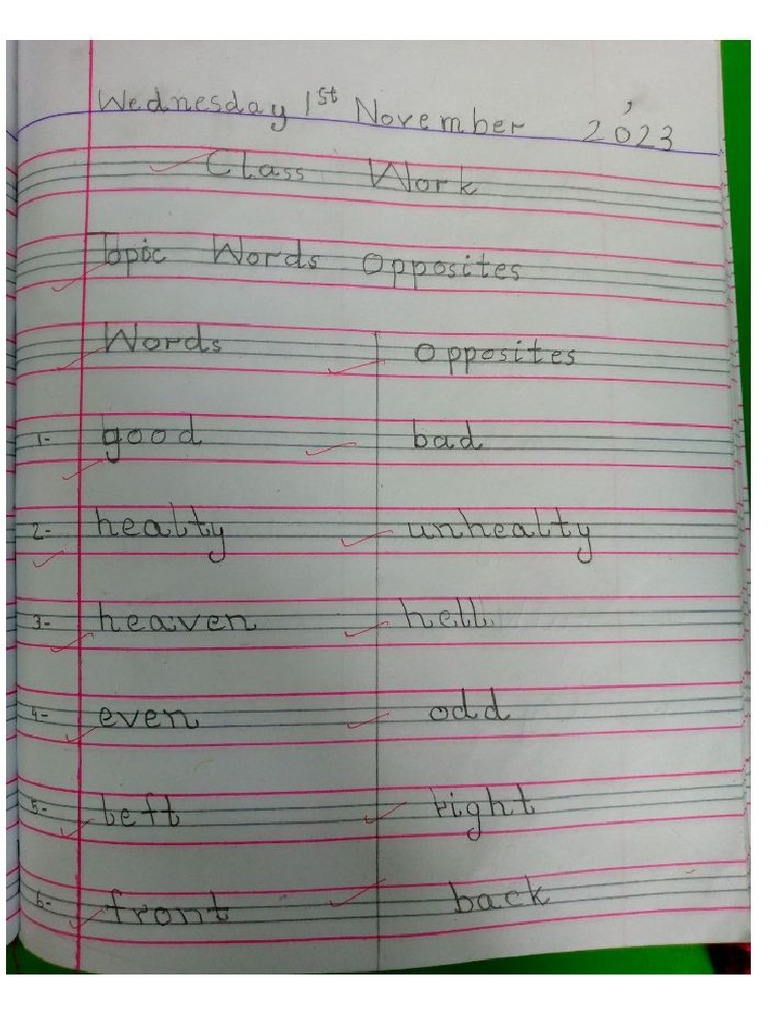 Wednesday 1st November 2023
Class Work
Topic Words Opposites
Words Opposites
1- good bad
2- healty unhealty
3- heaven hell
4- even odd
5- left right
6- front back